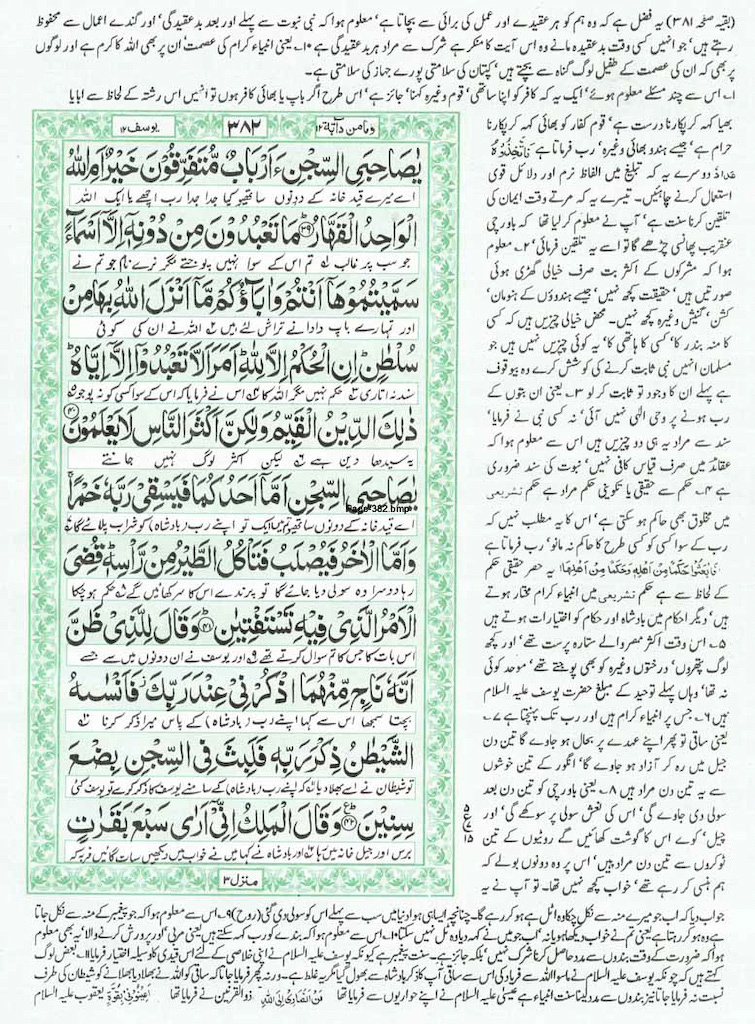 (بقیہ صفحہ ۳۸۱) یہ فضل ہے کہ وہ ہم کو ہر عقیدے اور عمل کی برائی سے بچاتا ہے' معلوم ہوا کہ نبی نبوت سے پہلے اور بعد بدعقیدگی' اور گندے اعمال سے محفوظ
رہتے ہیں' جو انہیں کسی وقت بدعقیدہ مانے وہ اس آیت کا منکر ہے شرک سے مراد ہر بدعقیدگی ہے ۱۰۔ یعنی انبیاء کرام کی عصمت' ان پر بھی اللہ کا کرم ہے اور لوگوں
پر بھی کہ ان کی عصمت کے طفیل لوگ گناہ سے بچتے ہیں' کپتان کی سلامتی پورے جہاز کی سلامتی ہے۔
۱۔ اس سے چند مسئلے معلوم ہوئے' ایک یہ کہ کافر کو اپنا ساتھی' قوم وغیرہ کہنا' جائز ہے' اس طرح اگر باپ یا بھائی کافر ہوں تو انہیں اس رشتہ کے لحاظ سے ابا یا
ومامن دآبۃ ۱۲
۳۸۲
یوسف ۱۲
يٰصَاحِبَيِ السِّجْنِ ءَاَرْبَابٌ مُّتَفَرِّقُوْنَ خَيْرٌ اَمِ اللّٰهُ
اے میرے قید خانہ کے دونوں ساتھیو کیا جدا جدا رب اچھے یا ایک اللہ
الْوَاحِدُ الْقَهَّارُ ۳۹ مَا تَعْبُدُوْنَ مِنْ دُوْنِهٖٓ اِلَّآ اَسْمَآءً
جو سب پر غالب تم اس کے سوا نہیں پوجتے مگر نرے نام جو تم نے
سَمَّيْتُمُوْهَآ اَنْتُمْ وَاٰبَآؤُكُمْ مَّآ اَنْزَلَ اللّٰهُ بِهَا مِنْ
اور تمہارے باپ دادا نے تراش لئے ہیں اللہ نے ان کی کوئی
سُلْطٰنٍ اِنِ الْحُكْمُ اِلَّا لِلّٰهِ اَمَرَ اَلَّا تَعْبُدُوْٓا اِلَّآ اِيَّاهُ
سند نہ اتاری حکم نہیں مگر اللہ کا اس نے فرمایا کہ اس کے سوا کسی کو نہ پوجو
ذٰلِكَ الدِّيْنُ الْقَيِّمُ وَلٰكِنَّ اَكْثَرَ النَّاسِ لَا يَعْلَمُوْنَ ۴۰
یہ سیدھا دین ہے لیکن اکثر لوگ نہیں جانتے
يٰصَاحِبَيِ السِّجْنِ اَمَّآ اَحَدُكُمَا فَيَسْقِيْ رَبَّهٗ خَمْرًا
Page-382.bmp
اے قید خانہ کے دونوں ساتھیو تم میں ایک تو اپنے رب (بادشاہ) کو شراب پلائے گا
وَاَمَّا الْاٰخَرُ فَيُصْلَبُ فَتَاْكُلُ الطَّيْرُ مِنْ رَّاْسِهٖ قُضِيَ
رہا دوسرا وہ سولی دیا جائے گا تو پرندے اس کا سر کھائیں گے حکم ہو چکا
الْاَمْرُ الَّذِيْ فِيْهِ تَسْتَفْتِيٰنِ ۴۱ وَقَالَ لِلَّذِيْ ظَنَّ
اس بات کا جس کا تم سوال کرتے تھے اور یوسف نے ان دونوں میں سے جسے
اَنَّهٗ نَاجٍ مِّنْهُمَا اذْكُرْنِيْ عِنْدَ رَبِّكَ فَاَنْسٰىهُ
بچتا سمجھا اس سے کہا اپنے رب (بادشاہ) کے پاس میرا ذکر کرنا
الشَّيْطٰنُ ذِكْرَ رَبِّهٖ فَلَبِثَ فِي السِّجْنِ بِضْعَ
تو شیطان نے اسے بھلا دیا کہ اپنے رب (بادشاہ) کے سامنے یوسف کا ذکر کرے تو یوسف کئی
سِنِيْنَ ۴۲ وَقَالَ الْمَلِكُ اِنِّيْٓ اَرٰى سَبْعَ بَقَرٰتٍ
برس اور جیل خانہ میں رہا اور بادشاہ نے کہا میں نے خواب میں دیکھیں سات گائیں فربہ کہ
منزل ۳
بھیا کہہ کر پکارنا درست ہے' قوم کفار کو بھائی کہہ کر پکارنا
حرام ہے' جیسے ہندو بھائی وغیرہ' رب فرماتا ہے
دوسرے یہ کہ تبلیغ میں الفاظ نرم اور دلائل قوی
استعمال کرنے چاہئیں۔ تیسرے یہ کہ مرتے وقت ایمان کی
تلقین کرنا سنت ہے' آپ نے معلوم کر لیا تھا کہ باورچی
عنقریب پھانسی چڑھے گا تو اسے یہ تلقین فرمائی' ۲۔ معلوم
ہوا کہ مشرکوں کے اکثر بت صرف خیالی گھڑی ہوئی
صورتیں ہیں' حقیقت کچھ نہیں' جیسے ہندوؤں کے ہنومان'
کشن' گنیش وغیرہ کچھ نہیں۔ محض خیالی چیزیں ہیں کہ کسی
کا منہ بندر کا' کسی کا ہاتھی کا' یہ کوئی چیزیں نہیں جو
مسلمان انہیں نبی ثابت کرنے کی کوشش کرے وہ بیوقوف
ہے پہلے ان کا وجود تو ثابت کر لو ۳۔ یعنی ان بتوں کے
رب ہونے پر وحی الٰہی نہیں آئی' نہ کسی نبی نے فرمایا'
سند سے مراد یہ ہی دو چیزیں ہیں اس سے معلوم ہوا کہ
عقائد میں صرف قیاس کافی نہیں' نبوت کی سند ضروری
ہے ۴۔ حکم سے حقیقی یا تکوینی حکم مراد ہے حکم تشریعی
میں مخلوق بھی حاکم ہو سکتی ہے' اس کا یہ مطلب نہیں کہ
رب کے سوا کسی کو کسی طرح کا حاکم نہ مانو' رب فرماتا ہے
فَابْعَثُوْا حَكَمًا مِّنْ اَهْلِهٖ وَحَكَمًا مِّنْ اَهْلِهَا یہ حصر حقیقی حکم
کے لحاظ سے ہے حکم تشریعی میں انبیاء کرام مختار ہوتے
ہیں' دیگر احکام میں بادشاہ اور حکام کو اختیارات ہوتے ہیں
۵۔ اس وقت اکثر مصر والے ستارہ پرست تھے' اور کچھ
لوگ پتھروں' درختوں وغیرہ کو بھی پوجتے تھے' موحد کوئی
نہ تھا' وہاں پہلے توحید کے مبلغ حضرت یوسف علیہ السلام
ہیں ۶۔ جس پر انبیاء کرام ہیں اور رب تک پہنچتا ہے ۷۔
یعنی ساقی تو پھر اپنے عہدے پر بحال ہو جاوے گا تین دن
جیل میں رہ کر آزاد ہو جاوے گا' انگور کے تین خوشوں
سے یہ تین دن مراد ہیں ۸۔ یعنی باورچی کو تین دن بعد
سولی دی جاوے گی' اس کی نعش سولی پر سوکھے گی' اور
چیل' کوے اس کا گوشت کھائیں گے روٹیوں کے تین
ٹوکروں سے تین دن مراد ہیں' اس پر وہ دونوں بولے کہ
ہم ہنسی کر رہے تھے' خواب کچھ نہیں تھا۔ تو آپ نے یہ
ع ۵ ۱۵
جواب دیا کہ اب جو میرے منہ سے نکل چکا وہ اٹل ہے ہو کر رہے گا۔ چنانچہ ایسا ہی ہوا دنیا میں سب سے پہلے اس کو سولی دی گئی (روح) ۹۔ اس سے معلوم ہوا کہ جو پیغمبر کے منہ سے نکل جاتا
ہے وہ ہو کر رہتا ہے یعنی تم نے خواب دیکھا ہو یا نہ' اب جو میں نے کہہ دیا وہ ٹل نہیں سکتا ۱۰۔ اس سے معلوم ہوا کہ بندے کو رب کہہ سکتے ہیں یعنی مربی' اور پرورش کرنے والا' یہ بھی معلوم
ہوا کہ ضرورت کے وقت بندوں سے مدد حاصل کرنا شرک نہیں' بلکہ جائز ہے۔ سنت پیغمبر ہے کیونکہ یوسف علیہ السلام نے اپنی خلاصی کے لئے اس قیدی کا وسیلہ اختیار فرمایا ۱۱۔ بعض لوگ
کہتے ہیں کہ چونکہ یوسف علیہ السلام نے ماسوا اللہ سے فریاد کی اس سے ساقی آپ کا ذکر بادشاہ سے بھول گیا مگر یہ غلط ہے۔ ورنہ پھر فرمایا جاتا کہ ساقی کو اللہ نے بھلا دیا بھلانے کو شیطان کی طرف
نسبت نہ فرمایا جاتا نیز بندوں سے مدد لینا سنت انبیاء ہے عیسیٰ علیہ السلام نے اپنے حواریوں سے فرمایا تھا مَنْ اَنْصَارِيْٓ اِلَى اللّٰهِ ذوالقرنین نے فرمایا تھا اَعِيْنُوْنِيْ بِقُوَّةٍ یعقوب علیہ السلام